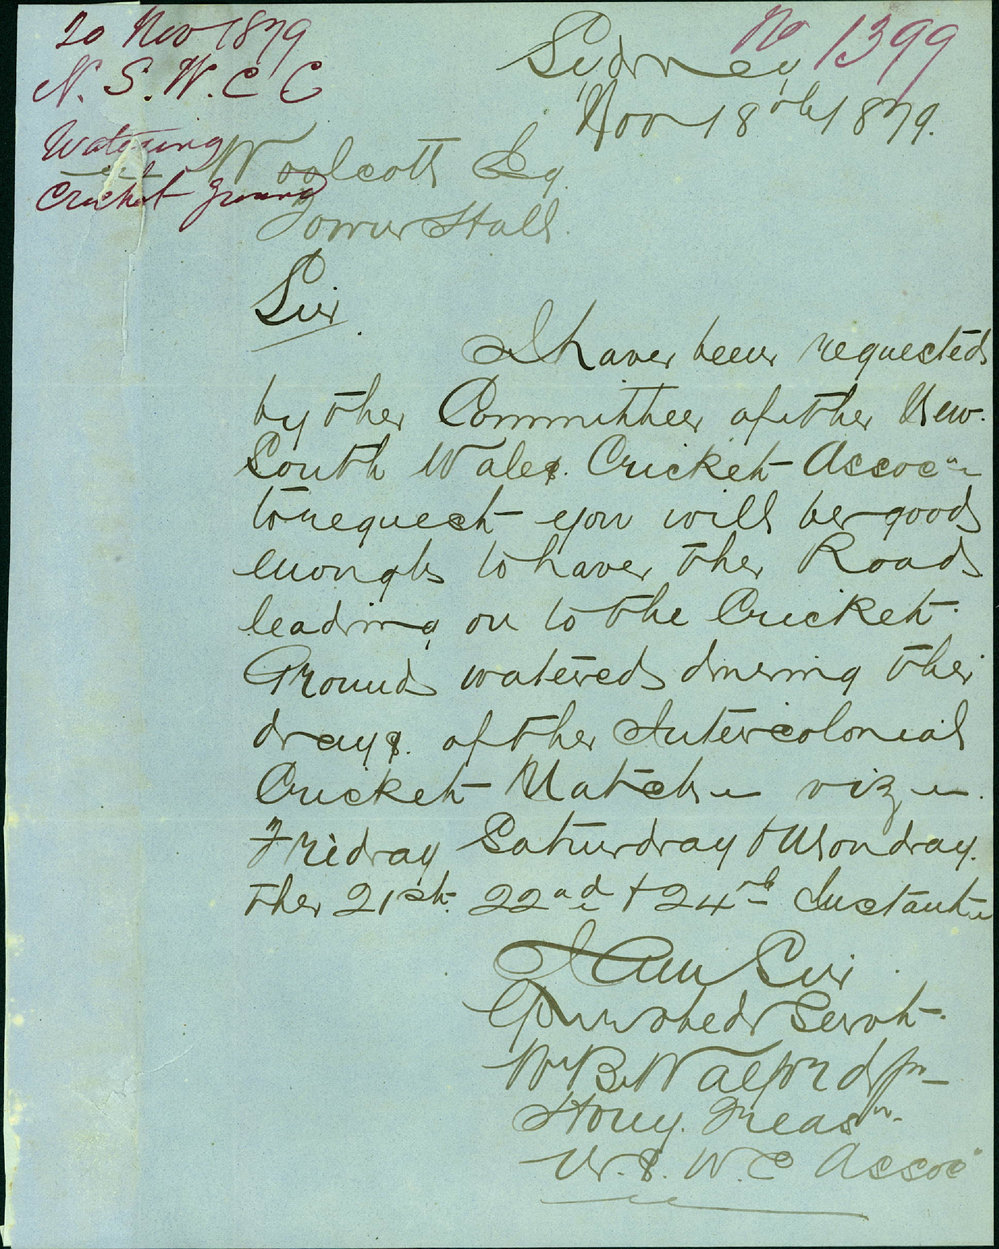 20 Nov 1879
N. S. W. C C
Watering
Cricket Ground
No 1399
Sydney
Nov 18th 1879.
Woolcott Esq
Town Hall.
Sir
I have been requested
by the Committee of the New
South Wales. Cricket Assocn
to request you will be good
enough to have the Road
leading on to the Cricket
Ground watered during the
days. of the Intercolonial
Cricket Match viz
Friday Saturday & Monday.
the 21st. 22nd & 24th Instant
I am Sir
Your obedt Servt.
W B Walford Jnr
Hony. Treasr.
N. S. W. C Assoc